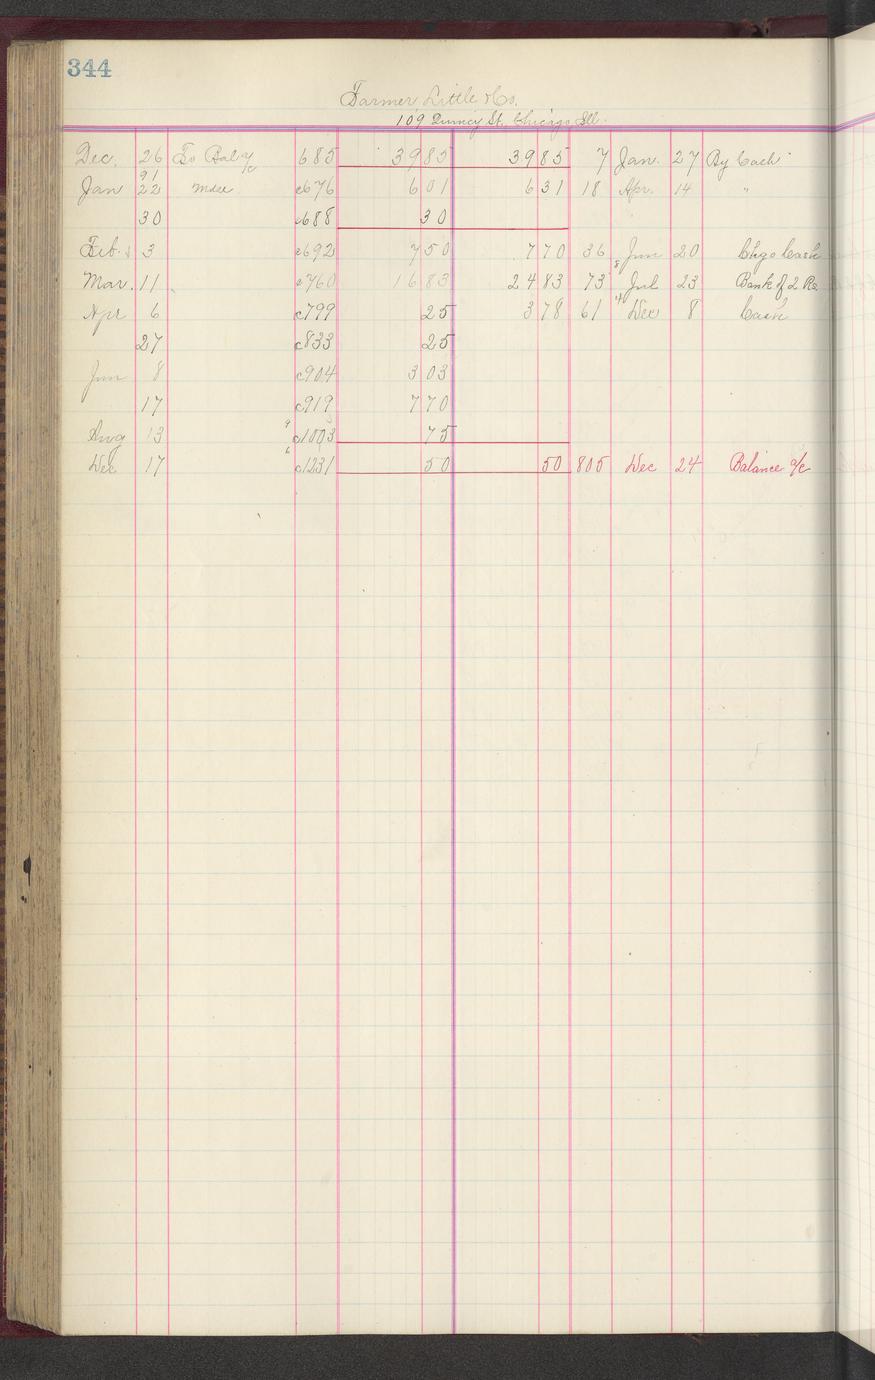 344
Farmer, Little & Co.
109 Quincy St. Chicago Ill.
Dec. 26 To Bal a/c 685 39 85 39 85 7 Jan. 27 By Cash
91
Jan 22 Mdse c676 6 01 6 31 18 Apr. 14 "
30 c688 30
Feb. 3 c692 7 50 7 70 36 Jun 20 Chgo Cash
Mar. 11 c760 16 83 24 83 73 Jul 23 Bank of
Apr 6 c799 25 3 78 61 Dec 8 Cash
27 c833 25
Jun 8 c904 3 03
17 c919 7 70
Aug 13 c1003 75
Dec 17 c1231 50 50 805 Dec 24 Balance a/c